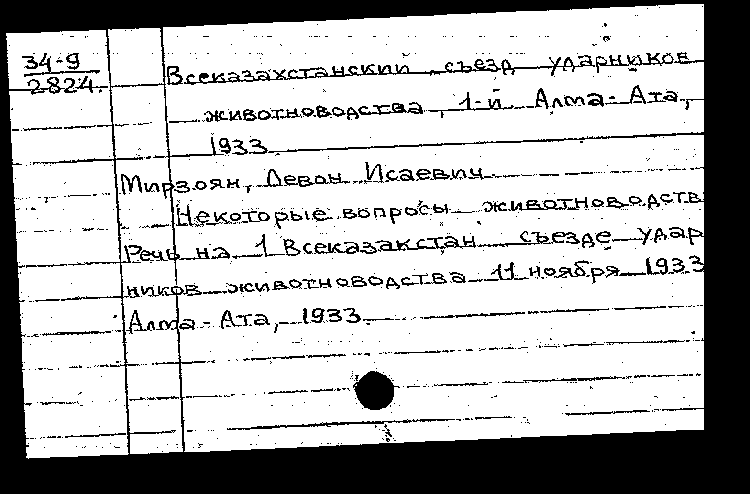 34-9
2824.
Всеказахстанский съезд ударников
животноводства, 1-й. Алма-Ата,
1933.
Мирзоян, Левон Исаевич.
Некоторые вопросы животноводств
Речь на 1 Всеказакстан съезде удар
ников животноводства 11 ноября 1933
Алма-Ата, 1933.